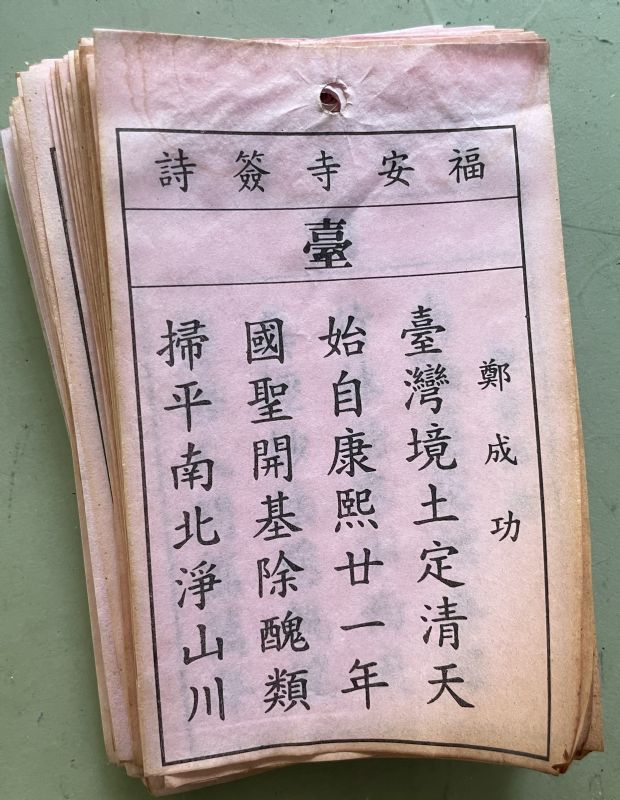 福安寺簽詩
臺
鄭成功
臺灣境土定清天
始自康熙廿一年
國聖開基除醜類
掃平南北淨山川